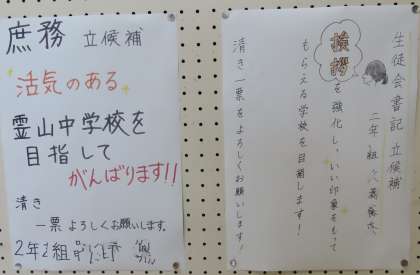 庶務 立候補
活気のある
霊山中学校を
目指して
がんばります!!
清き
一票 よろしくお願いします。
2年2組
生徒会書記 立候補
二年 組
挨拶を強化し、いい印象をもって
もらえる学校を目指します!
清き一票をよろしくお願いします!